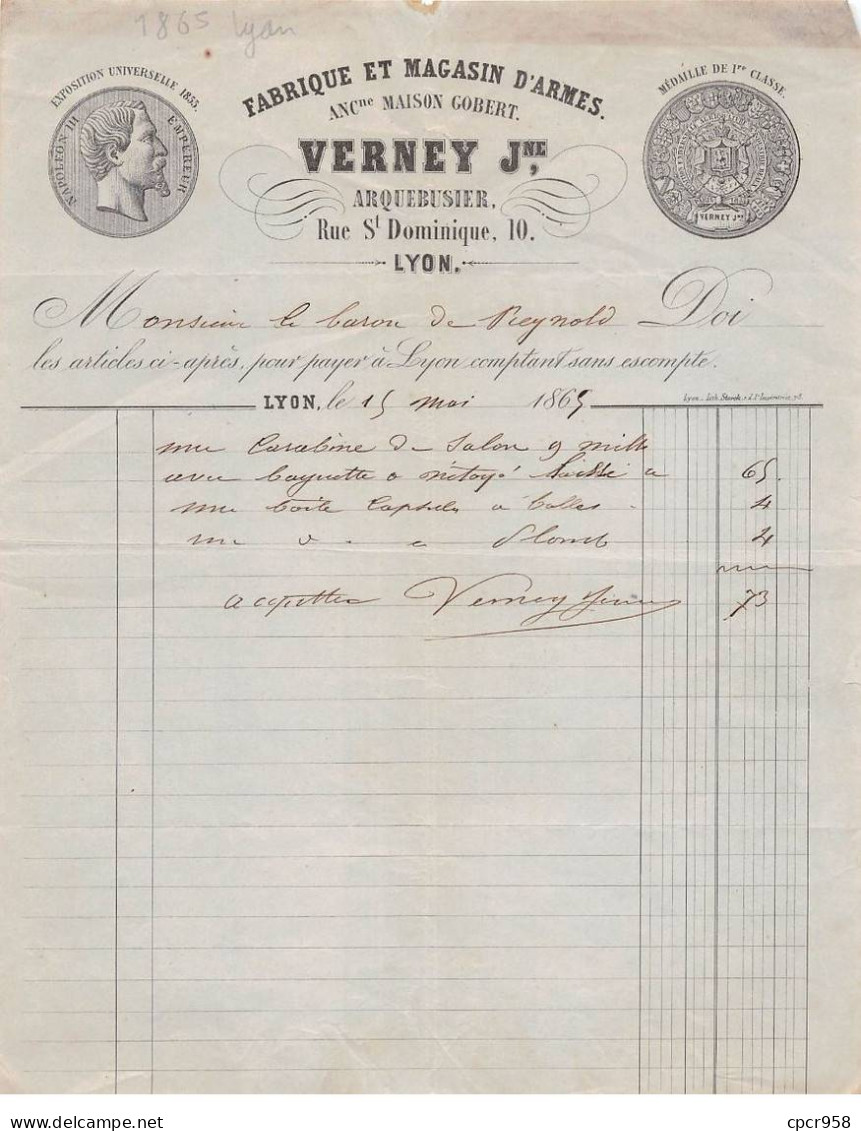 1865 Lyon
EXPOSITION UNIVERSELLE 1855.
NAPOLEON III EMPEREUR
FABRIQUE ET MAGASIN D'ARMES.
ANCne MAISON GOBERT.
VERNEY JNE,
ARQUEBUSIER,
Rue St Dominique, 10.
LYON.
MÉDAILLE DE 1re CLASSE.
VERNEY Jne
Monsieur le baron de Reynold Doi
les articles ci-après, pour payer à Lyon comptant sans escompte.
LYON, le 15 mai 1865
Lyon. Lith. Storck
une Carabine de Salon 9 mill
avec baguette a nétoyé 65.
une boite Capsules a balles 4
une " " a plomb 4
acquitter Verney Jeune 73
cpcr958